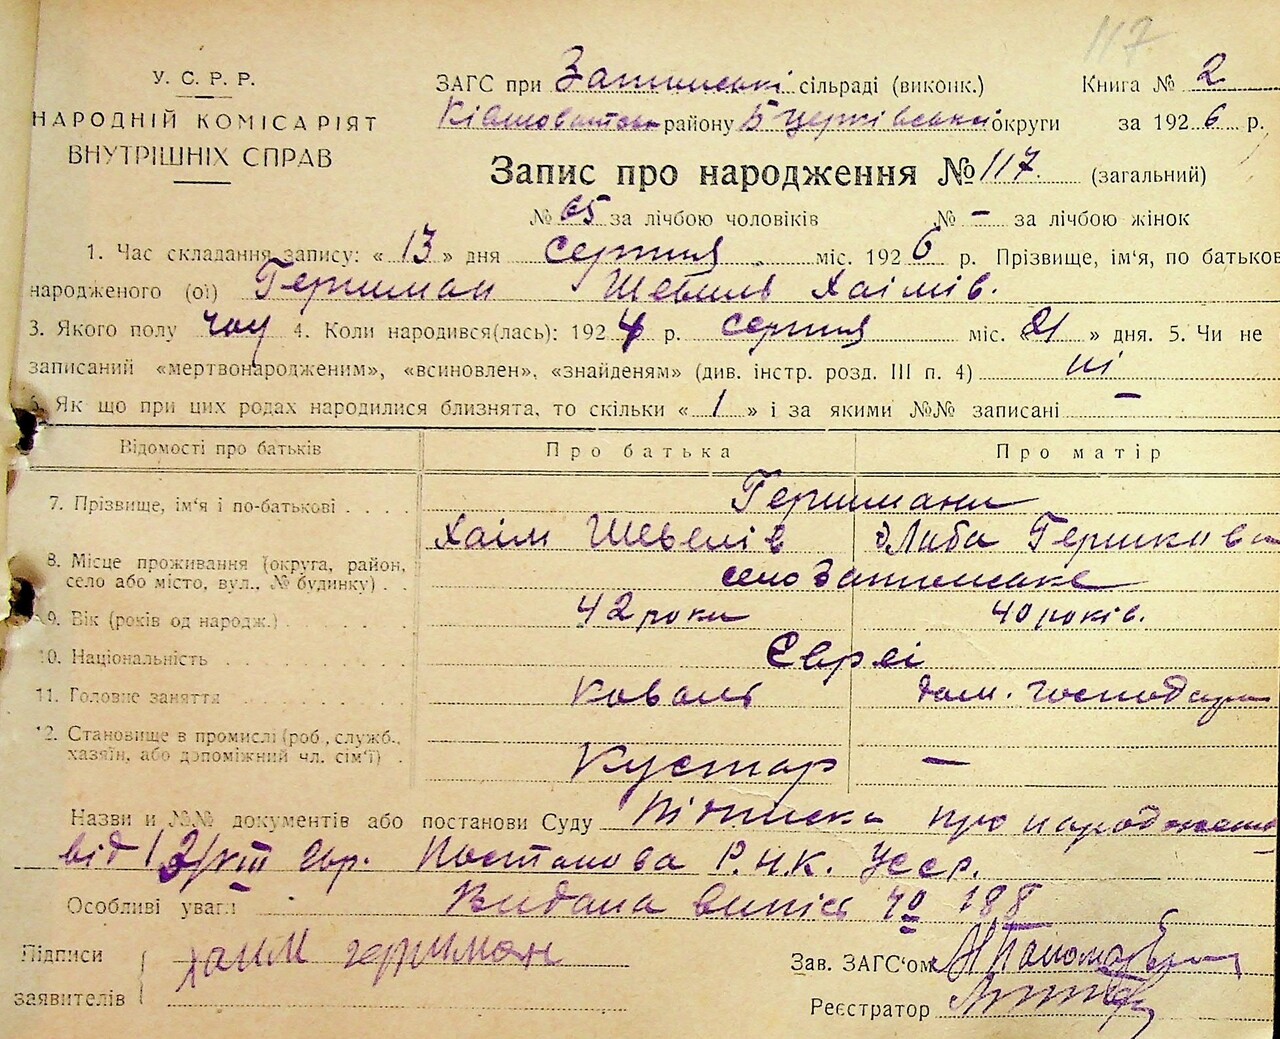 117.
У. С. Р. Р.
НАРОДНІЙ КОМІСАРІЯТ
ВНУТРІШНІХ СПРАВ
ЗАГС при сільраді (виконк.) Книга № 2
району Б Церківської округи за 1926 р.
Запис про народження № 117. (загальний)
№ 65 за лічбою чоловіків № – за лічбою жінок
1. Час складання запису: « 13 » дня серпня міс. 1926 р. Прізвище, ім'я, по батьков
народженого (ої) Гершман Шевель Хаімів.
3. Якого полу чол 4. Коли народився(лась): 1924 р. серпня міс. « 21 » дня. 5. Чи не
записаний «мертвонародженим», «всиновлен», «знайденям» (див. інстр. розд. III п. 4) ні
6. Як що при цих родах народилися близнята, то скільки « 1 » і за якими №№ записані –
Відомості про батьків Про батька Про матір
7. Прізвище, ім'я і по-батькові . . . . Гершмани
Хаім Шевелів Ліба Гершкова
8. Місце проживання (округа, район,
село або місто, вул., № будинку) . село
9. Вік (років од народж.) 42 роки 40 років.
10. Національність Євреї
11. Головне заняття Коваль дом. господарка
12. Становище в промислі (роб., служб.,
хазяїн, або допоміжний чл. сім'ї) . Кустар –
Назви и №№ документів або постанови Суду Підписка про народження
від 12/VIII с/р. Постанова Р.Н.К. Усср.
Особливі уваги Видана випись № 188
Підписи
заявителів
хаим гершман
Зав. ЗАГС'ом
Реєстратор